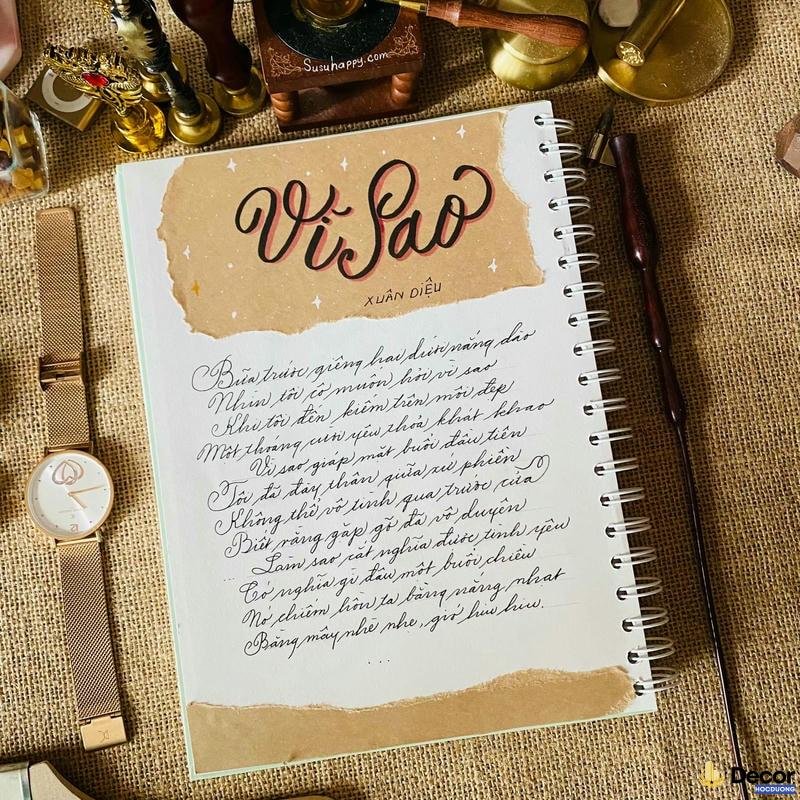 Susuhappy.com
Vì Sao
XUÂN DIỆU
Bữa trước giêng hai dưới nắng đào
Nhìn tôi cô muốn hỏi vì sao
Khi tôi đến kiếm trên môi đẹp
Một thoáng cười yêu thỏa khát khao
Vì sao giáp mặt buổi đầu tiên
Tôi đã đày thân giữa xứ phiền
Không thể vô tình qua trước cửa
Biết rằng gặp gỡ đã vô duyên
... Làm sao cắt nghĩa được tình yêu
Có nghĩa gì đâu một buổi chiều
Nó chiếm hồn ta bằng nắng nhạt
Bằng mây nhè nhẹ, gió hiu hiu.
...
Decor
HOCDUONG